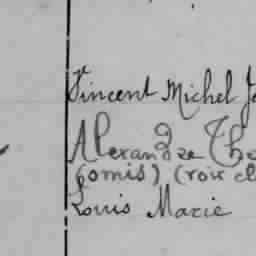 Vincent Michel Je
Alexandre The
(omis) (voir cl
Louis Marie